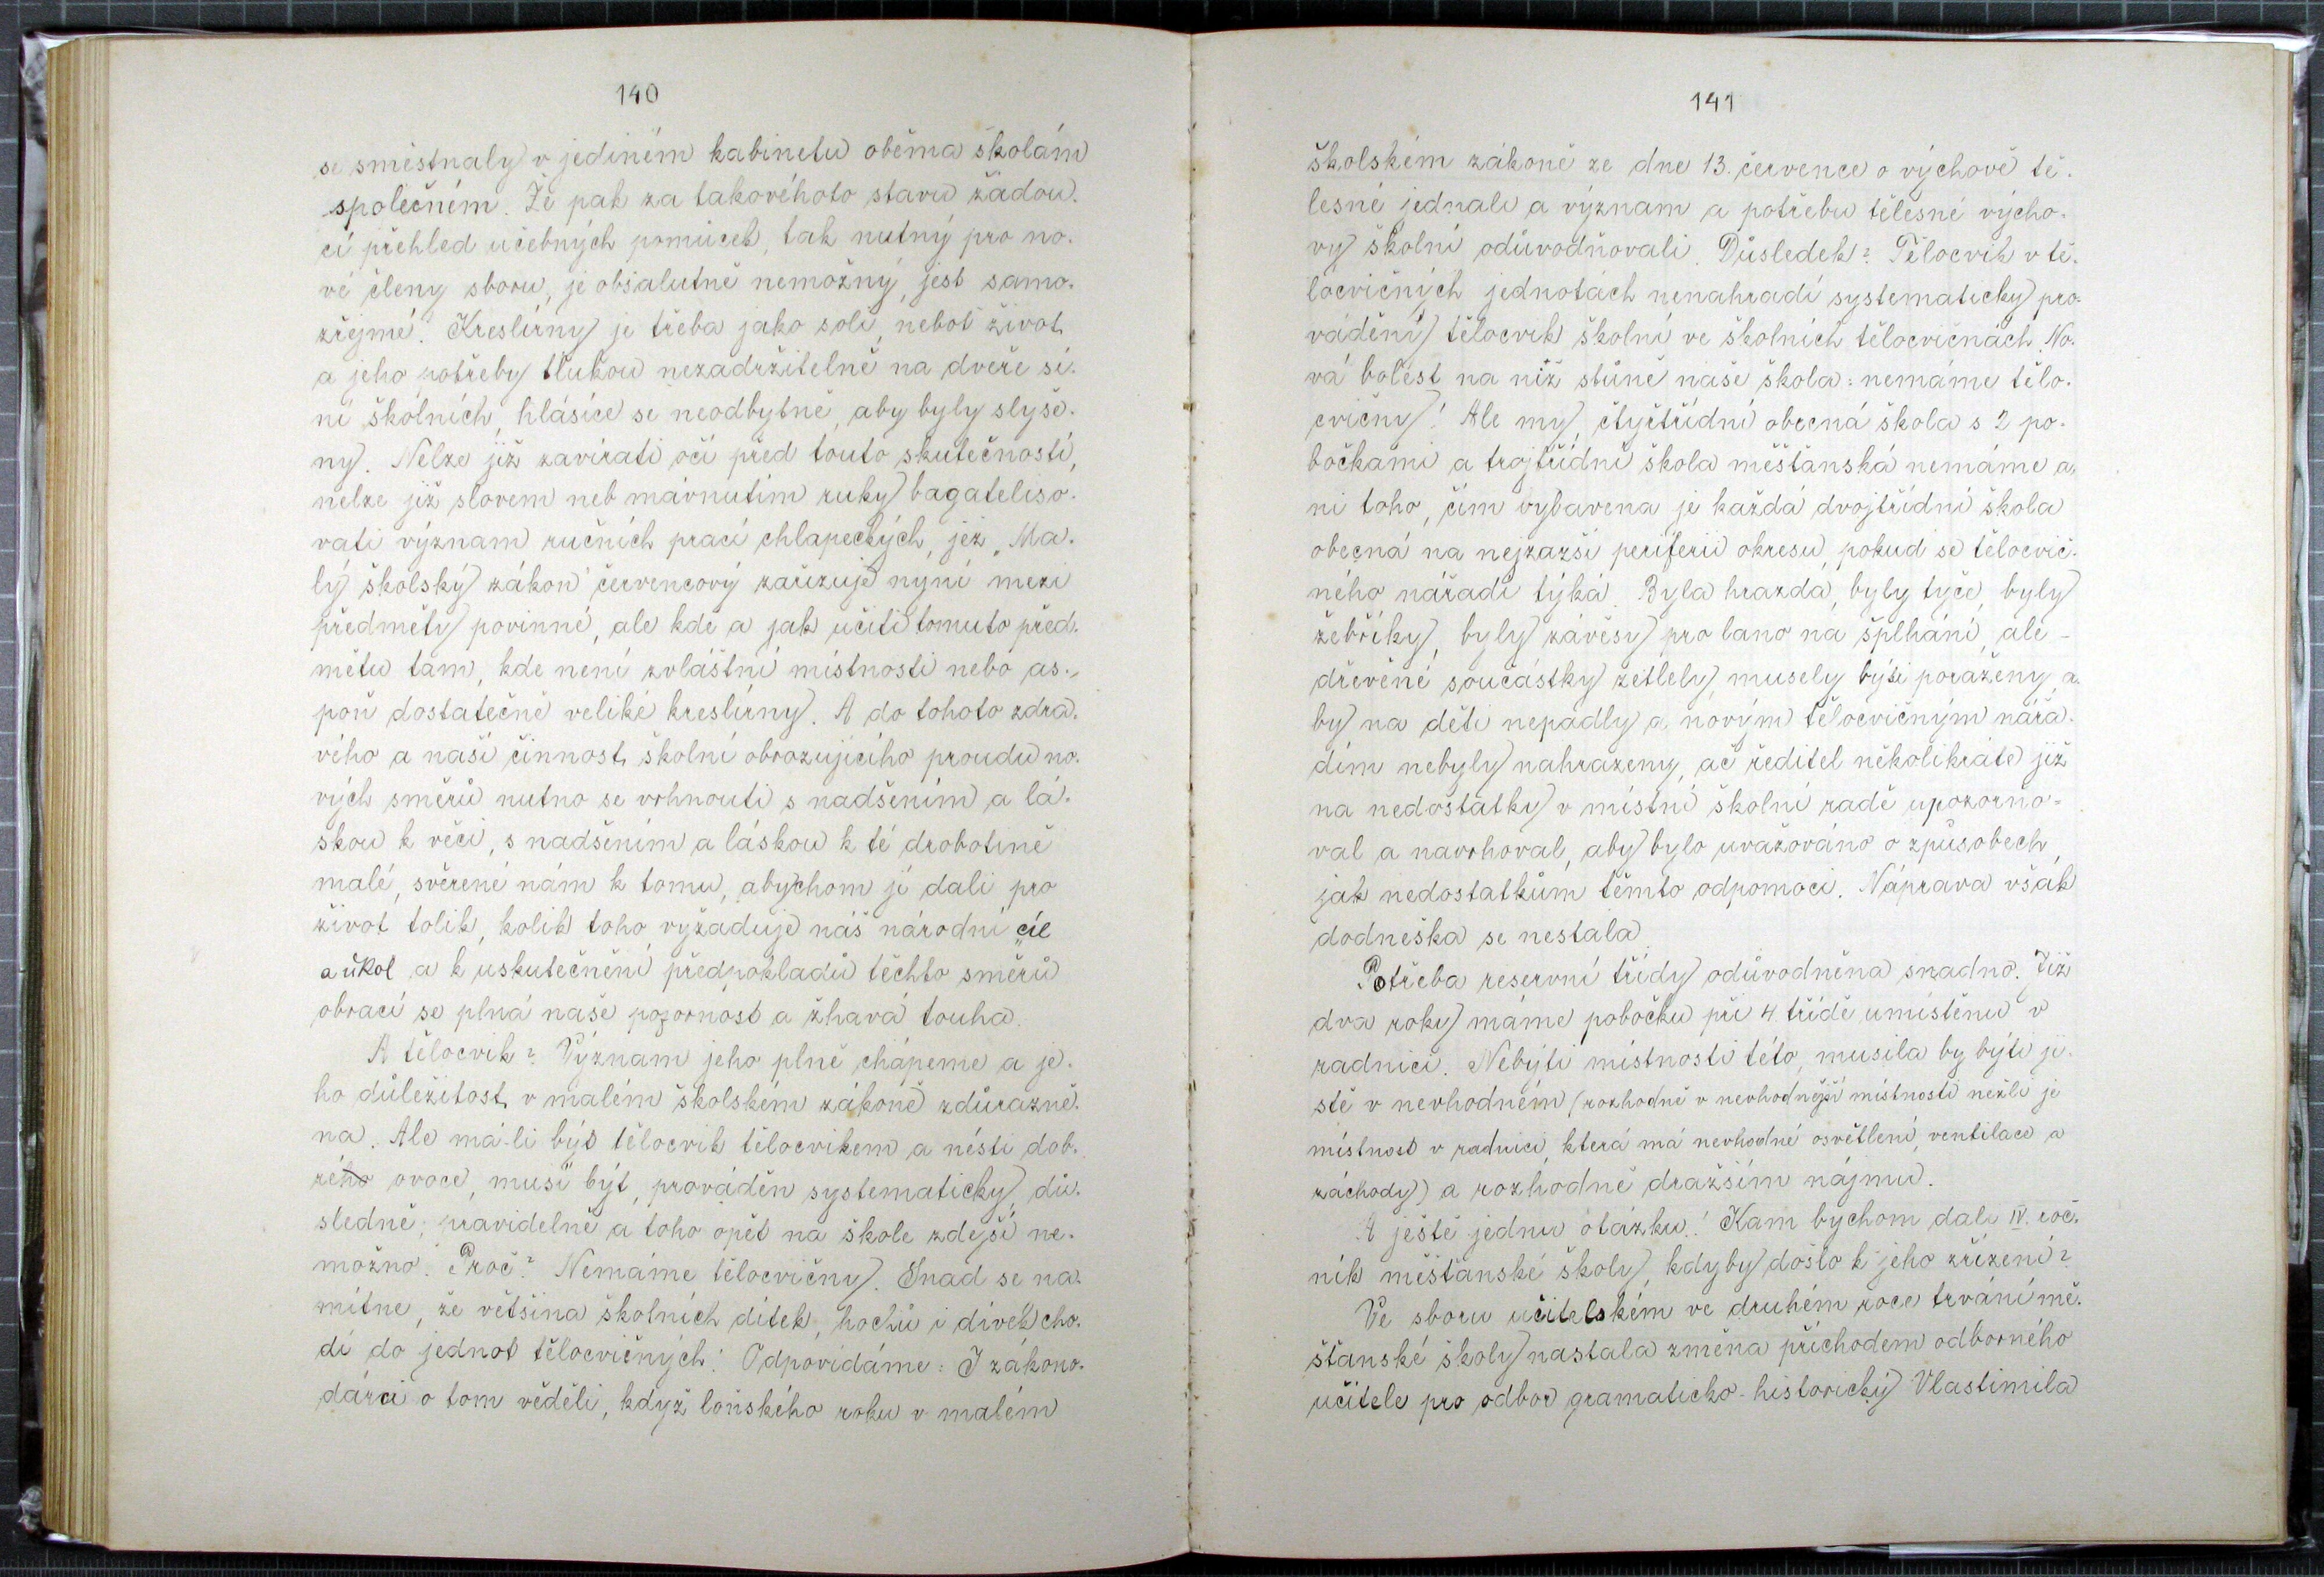 140
se směstnaly v jediném kabinetu oběma školám
společném. Že pak za takovéhoto stavu žádou-
cí přehled učebných pomůcek, tak nutný pro no-
vé členy sboru, je obsalutně nemožný, jest samo-
zřejmé. Kreslírny je třeba jako soli, neboť život
a jeho potřeby tlukou nezadržitelně na dveře sí-
ní školních, hlásíce se neodbytně, aby byly slyše-
ny. Nelze již zavírati oči před touto skutečností,
nelze již slovem neb mávnutím ruky bagateliso-
vati význam ručních prací chlapeckých, jež „Ma-
lý školský zákon" červencový zařizuje nyní mezi
předměty povinné, ale kde a jak učiti tomuto před-
mětu tam, kde není zvláštní místnosti nebo as-
poň dostatečně veliké kreslírny. A do tohoto zdra-
vého a naši činnost školní obrozujícího proudu no-
vých směrů nutno se vrhnouti s nadšením a lá-
skou k věci, s nadšením a láskou k té drobotině
malé, svěřené nám k tomu, abychom jí dali pro
život tolik, kolik toho vyžaduje náš národní cíl
a úkol a k uskutečnění předpokladů těchto směrů
obrací se plná naše pozornost a žhavá touha.
A tělocvik? Význam jeho plně chápeme a je-
ho důležitost v malém školském zákoně zdůrazně-
na. Ale má-li býť tělocvik tělocvikem a nésti dob-
rého ovoce, musí býť prováděn systematicky, dů-
sledně, pravidelně a toho opět na škole zdejší ne-
možno. Proč? Nemáme tělocvičny. Snad se na-
mítne, že většina školních dítek, hochů i dívek cho-
dí do jednot tělocvičných! Odpovídáme: I zákono-
dárci o tom věděli, když loňského roku v malém
141
školském zákoně ze dne 13. července o výchově tě-
lesné jednali a význam a potřebu tělesné výcho-
vy školní odůvodňovali. Důsledek? Tělocvik v tě-
locvičných jednotách nenahradí systematicky pro-
váděný tělocvik školní ve školních tělocvičnách. No-
vá bolest na niž stůně naše škola: nemáme tělo-
cvičny! Ale my, čtyřtřídní obecná škola s 2 po-
bočkami a trojtřídní škola měšťanská nemáme a-
ni toho, čím vybavena je každá dvojtřídní škola
obecná na nejzazší periferii okresu, pokud se tělocvič-
ného nářadí týká. Byla hrazda, byly tyče, byly
žebříky, byly závěsy pro lano na šplhání, ale -
dřevěné součástky zetlely, musely býti poraženy, a-
by na děti nepadly a novým tělocvičným nářa-
dím nebyly nahrazeny, ač ředitel několikráte již
na nedostatky v místní školní radě upozorňo-
val a navrhoval, aby bylo uvažováno o způsobech,
jak nedostatkům těmto odpomoci. Náprava však
dodneška se nestala.
Potřeba reservní třídy odůvodněna snadno. Již
dva roky máme pobočku při 4. třídě umístěnu v
radnici. Nebýti místnosti této, musila by býti ji-
stě v nevhodném (rozhodně v nevhodnější místnosti nežli je
místnost v radnici, která má nevhodné osvětlení, ventilace a
záchody) a rozhodně dražším nájmu.
A ještě jednu otázku! Kam bychom dali IV. roč-
ník měšťanské školy, kdyby došlo k jeho zřízení?
Ve sboru učitelském ve druhém roce trvání mě-
šťanské školy nastala změna příchodem odborného
učitele pro odbor gramaticko-historický Vlastimila